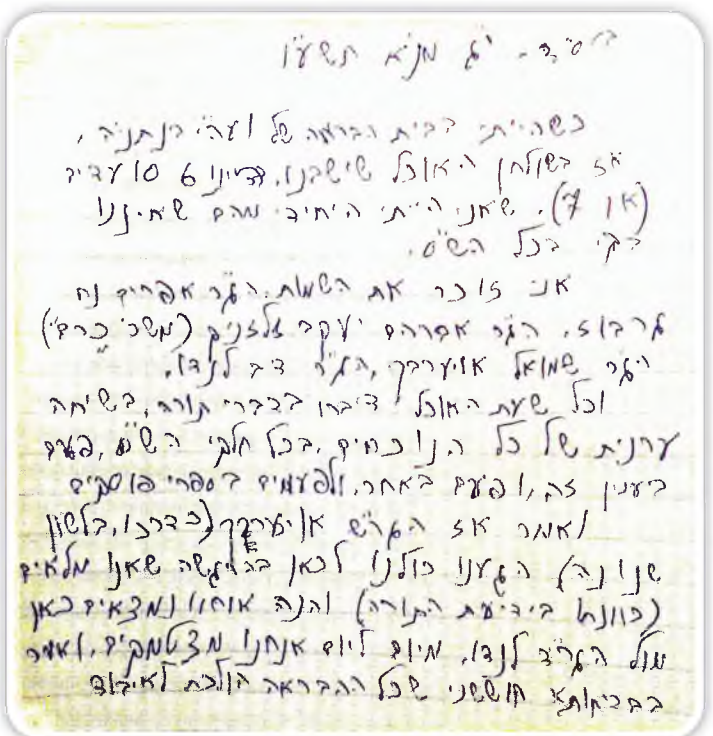 בס"ד. י"ג מנ"א תשע"ו
כשהייתי בבית הבראה של ועה"י בנתניה,
אז בשולחן האוכל שישבנו, היינו 6 סועדים
(או 7). שאני הייתי היחידי מהם שאיננו
בקי בכל הש"ס.
אני זוכר את השמות. הג"ר אפרים נח
גרבוז. הג"ר אברהם יעקב זלזניק (משכ' כרם")
הג"ר שמואל אויערבך, הג"ר דיב לנדו,
וכל שעת האוכל דיברו בדברי תורה, בשיחה
ערנית של כל הנוכחים, בכל חלקי הש"ס, פעם
בענין זה, ופעם באחר, ולפעמים בספרי פוסקים
ואמר אז הגר"ש אויערבך (כדרכו, בלשון
שנונה) הגענו כולנו לכאן בהרגשה שאנו מלאים
(כוונתו בידיעת התורה) והנה אנחנו נמצאים כאן
מול הגר"ד לנדו, מיום ליום אנחנו מצטמקים, ואמר
בבדיחותא חוששני שכל ההבראה הולכת לאיבוד